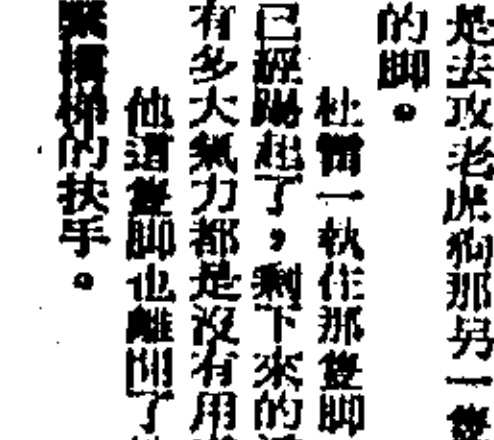 是去攻老虎狗那另一隻
的脚。
杜雷一執住那隻脚
已經踢起了，剩下來的
有多大氣力都是沒有用
他這隻脚也離開了
緊樓梯的扶手。